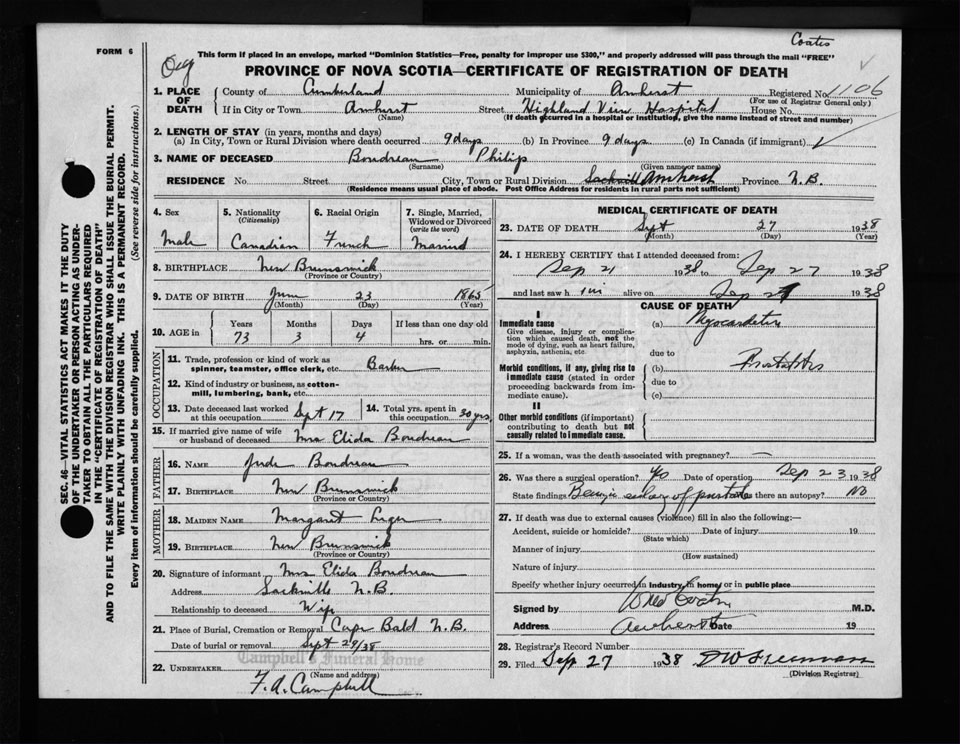 Coates
FORM 6
This form if placed in an envelope, marked "Dominion Statistics—Free, penalty for improper use $300," and properly addressed will pass through the mail "FREE"
PROVINCE OF NOVA SCOTIA—CERTIFICATE OF REGISTRATION OF DEATH
1. PLACE OF DEATH
County of Cumberland Municipality of Amherst Registered No. 1106
(For use of Registrar General only)
If in City or Town Amherst Street Highland View Hospital House No.
(Name) (If death occurred in a hospital or institution, give the name instead of street and number)
2. LENGTH OF STAY (in years, months and days)
(a) In City, Town or Rural Division where death occurred 9 days (b) In Province 9 days (c) In Canada (if immigrant)
3. NAME OF DECEASED Boudreau Philip
(Surname) (Given name or names)
RESIDENCE No. Street City, Town or Rural Division Sackville Amherst Province N.B.
(Residence means usual place of abode. Post Office Address for residents in rural parts not sufficient)
SEC. 46—VITAL STATISTICS ACT MAKES IT THE DUTY
OF THE UNDERTAKER OR PERSON ACTING AS UNDER-
TAKER TO OBTAIN ALL THE PARTICULARS REQUIRED
IN THE "CERTIFICATE OF REGISTRATION OF DEATH"
AND TO FILE THE SAME WITH THE DIVISION REGISTRAR WHO SHALL ISSUE THE BURIAL PERMIT.
WRITE PLAINLY WITH UNFADING INK. THIS IS A PERMANENT RECORD.
Every item of information should be carefully supplied. (See reverse side for instructions.)
4. Sex
Male
5. Nationality
(Citizenship)
Canadian
6. Racial Origin
French
7. Single, Married,
Widowed or Divorced
(write the word)
Married
8. BIRTHPLACE New Brunswick
(Province or Country)
9. DATE OF BIRTH June 23 1865
(Month) (Day) (Year)
10. AGE in
Years Months Days If less than one day old
73 3 4 hrs. or min.
OCCUPATION
11. Trade, profession or kind of work as
spinner, teamster, office clerk, etc. Barber
12. Kind of industry or business, as cotton-
mill, lumbering, bank, etc.
13. Date deceased last worked
at this occupation Sept 17
14. Total yrs. spent in
this occupation 30 yrs
15. If married give name of wife
or husband of deceased Mrs Elida Boudreau
FATHER
16. NAME Jude Boudreau
17. BIRTHPLACE New Brunswick
(Province or Country)
MOTHER
18. MAIDEN NAME Margaret Leger
19. BIRTHPLACE New Brunswick
(Province or Country)
20. Signature of informant Mrs Elida Boudreau
Address Sackville N.B.
Relationship to deceased Wife
21. Place of Burial, Cremation or Removal Cape Bald N.B.
Date of burial or removal Sept 29/38
Campbell's Funeral Home
22. UNDERTAKER
(Name and address)
F. A. Campbell
MEDICAL CERTIFICATE OF DEATH
23. DATE OF DEATH Sept 27 1938
(Month) (Day) (Year)
24. I HEREBY CERTIFY that I attended deceased from:
Sep 21 1938 to Sep 27 1938
and last saw h im alive on Sep 27 1938
CAUSE OF DEATH
I
Immediate cause
Give disease, injury or complica-
tion which caused death, not the
mode of dying, such as heart failure,
asphyxia, asthenia, etc.
(a) Myocarditis
due to
Morbid conditions, if any, giving rise to
immediate cause (stated in order
proceeding backwards from im-
mediate cause).
(b) Prostatitis
due to
(c)
II
Other morbid conditions (if important)
contributing to death but not
causally related to immediate cause.
25. If a woman, was the death associated with pregnancy? —
26. Was there a surgical operation? Yes Date of operation Sep 23 1938
State findings Benign enlarg of prostate Was there an autopsy? NO
27. If death was due to external causes (violence) fill in also the following:—
Accident, suicide or homicide? Date of injury 19
(State which)
Manner of injury
(How sustained)
Nature of injury
Specify whether injury occurred in industry, in home, or in public place
Signed by M.D.
Address Amherst Date 19
28. Registrar's Record Number
29. Filed Sep 27 1938 Freeman
(Division Registrar)